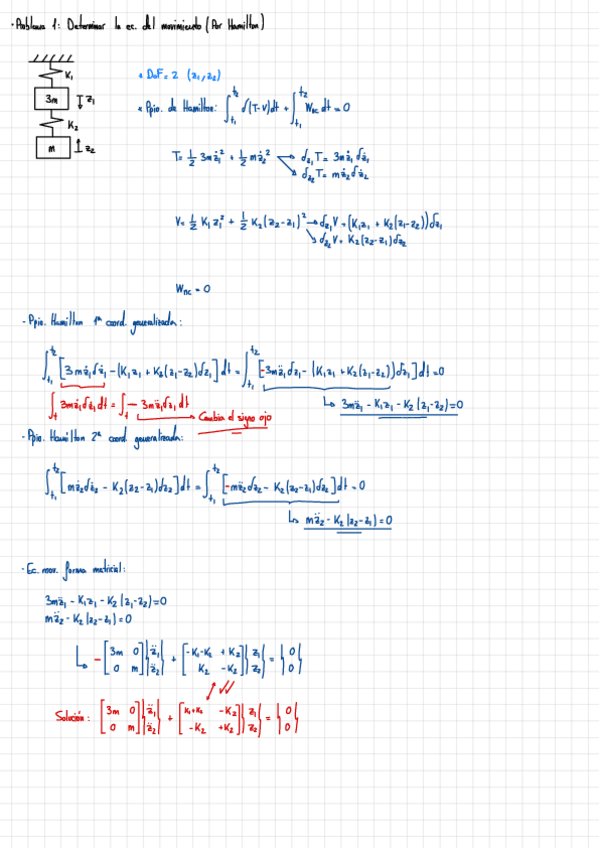 · Problema 1: Determinar la ec. del movimiento (Por Hamilton)
K₁
3m
z₁
K₂
m
z₂
* DoF = 2 (z₁, z₂)
* Ppio. de Hamilton: ∫_{t₁}^{t₂} δ(T-V)dt + ∫_{t₁}^{t₂} W_{nc} dt = 0
T = 1/2 3mż₁² + 1/2 mż₂² → δ_{z₁}T = 3mż₁δż₁
→ δ_{z₂}T = mż₂δż₂
V = 1/2 K₁z₁² + 1/2 K₂(z₂-z₁)² → δ_{z₁}V = (K₁z₁ + K₂(z₁-z₂))δz₁
→ δ_{z₂}V = K₂(z₂-z₁)δz₂
W_{nc} = 0
· Ppio. Hamilton 1ª coord. generalizada:
∫_{t₁}^{t₂} [3mż₁δż₁ - (K₁z₁ + K₂(z₁-z₂)δz₁] dt = ∫_{t₁}^{t₂} [-3mz̈₁δz₁ - (K₁z₁ + K₂(z₁-z₂))δz₁] dt = 0
∫_t 3mż₁δż₁ dt = ∫_t - 3mz̈₁δz₁ dt
↳ 3mz̈₁ - K₁z₁ - K₂(z₁-z₂) = 0
→ Cambia el signo ojo
· Ppio. Hamilton 2ª coord. generalizada:
∫_{t₁}^{t₂} [mż₂δż₂ - K₂(z₂-z₁)δz₂] dt = ∫_{t₁}^{t₂} [-mz̈₂δz₂ - K₂(z₂-z₁)δz₂] dt = 0
↳ mz̈₂ - K₂(z₂-z₁) = 0
· Ec. mov. forma matricial:
3mz̈₁ - K₁z₁ - K₂(z₁-z₂) = 0
mz̈₂ - K₂(z₂-z₁) = 0
↳ - [3m 0; 0 m] {z̈₁; z̈₂} + [-K₁-K₂ +K₂; K₂ -K₂] {z₁; z₂} = {0; 0}
Solución: [3m 0; 0 m] {z̈₁; z̈₂} + [K₁+K₂ -K₂; -K₂ +K₂] {z₁; z₂} = {0; 0}